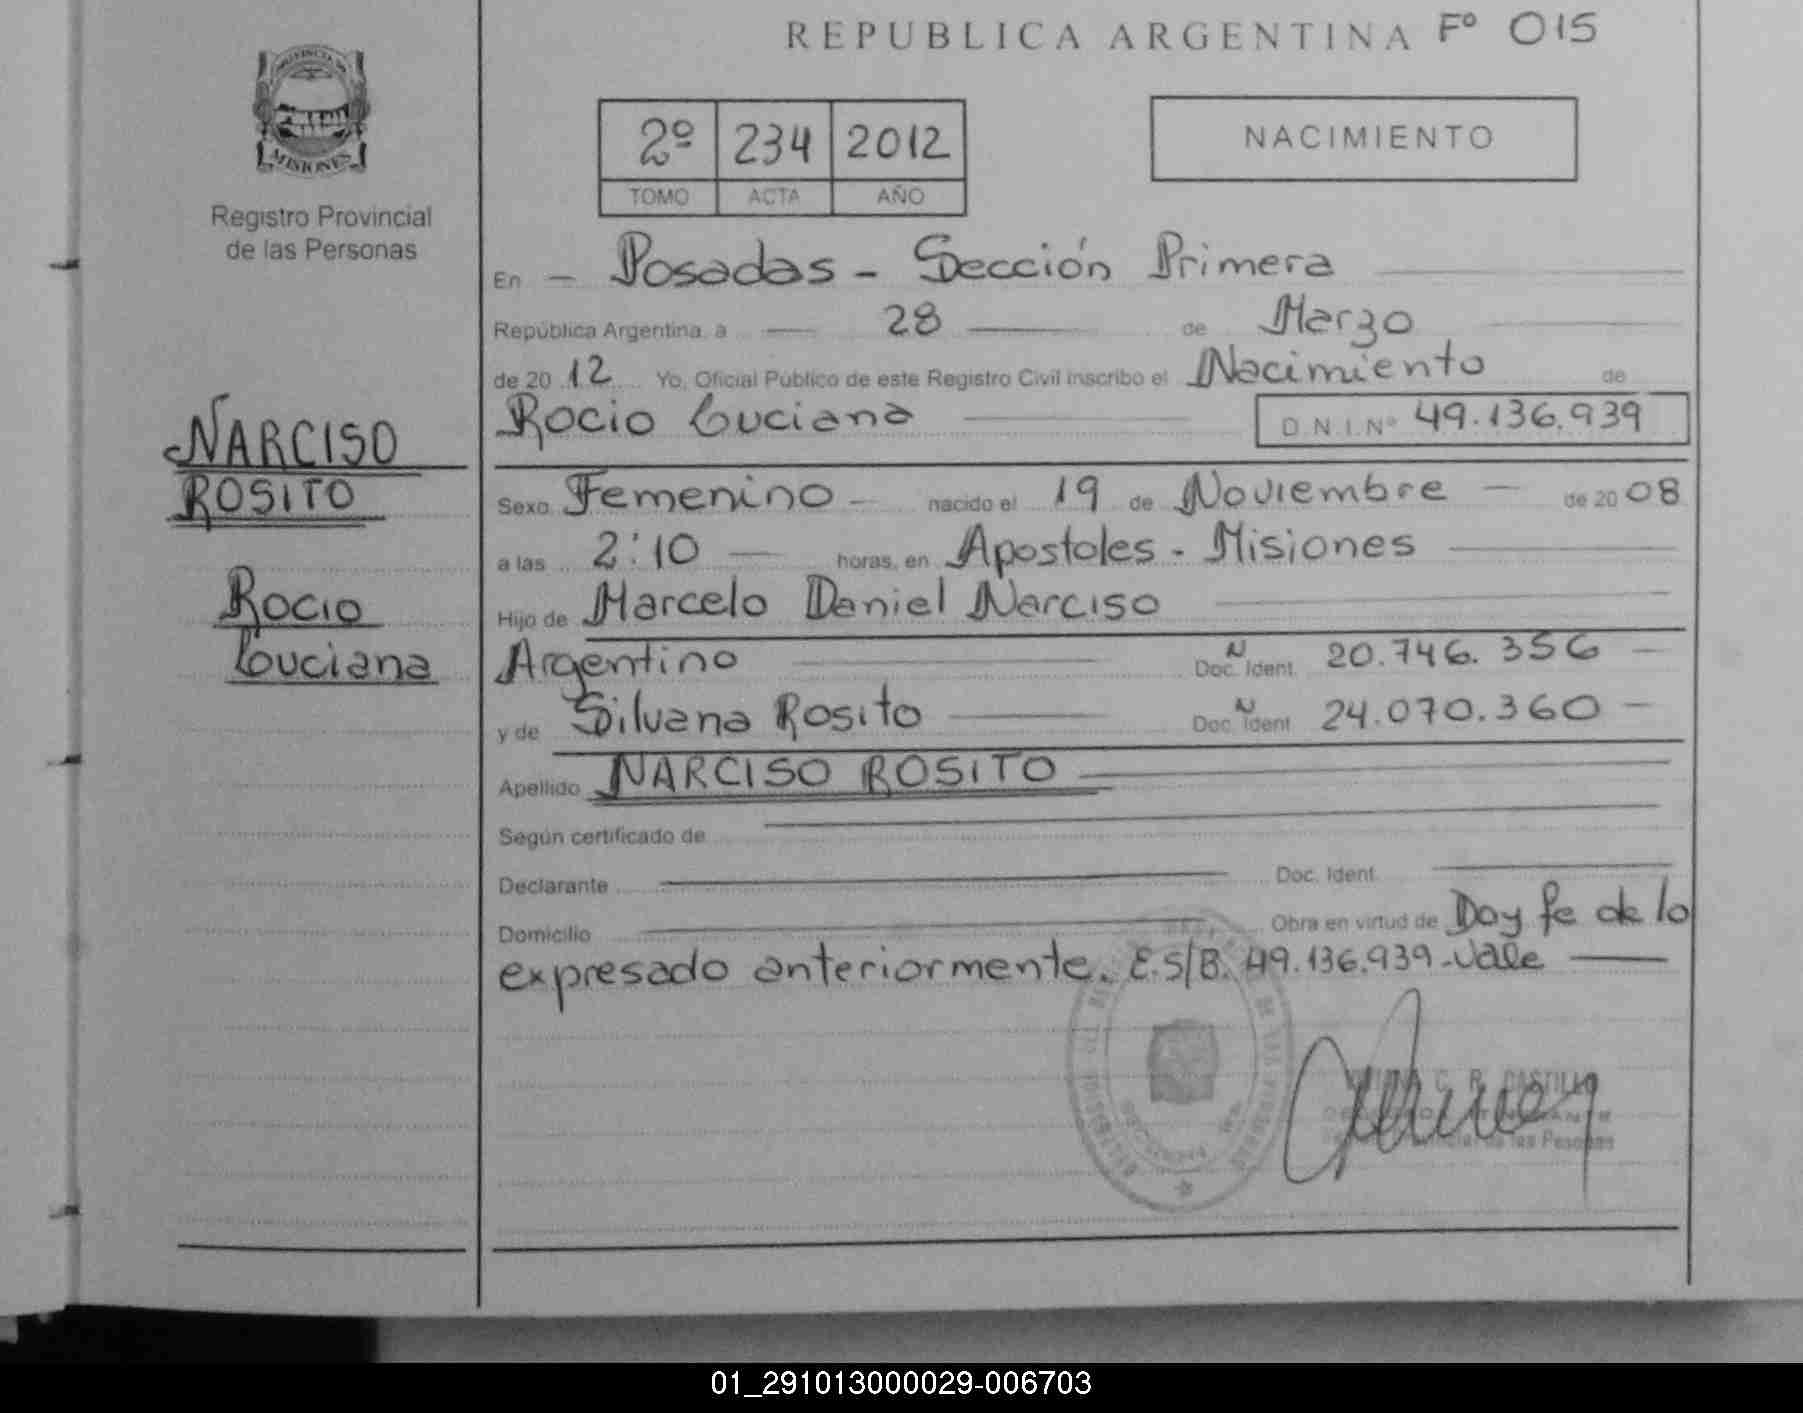 REPUBLICA ARGENTINA Fº 015
PROVINCIA DE
MISIONES
Registro Provincial
de las Personas
2º 234 2012
TOMO ACTA AÑO
NACIMIENTO
En - Posadas - Sección Primera
República Argentina, a 28 de Marzo
de 20 12 Yo, Oficial Público de este Registro Civil inscribo el Nacimiento de
Rocio Luciana D.N.I.Nº 49.136.939
NARCISO
ROSITO
Rocio
Luciana
Sexo Femenino - nacido el 19 de Noviembre - de 20 08
a las 2:10 horas, en Apostoles - Misiones
Hijo de Marcelo Daniel Narciso
Argentino N Doc. Ident. 20.746.356
y de Silvana Rosito N Doc. Ident. 24.070.360
Apellido NARCISO ROSITO
Según certificado de
Declarante Doc. Ident.
Domicilio Obra en virtud de Doy fe de lo
expresado anteriormente. E.S/B. 49.136.939 - Vale
C. R. CASTILLO
de las Personas
01_291013000029-006703